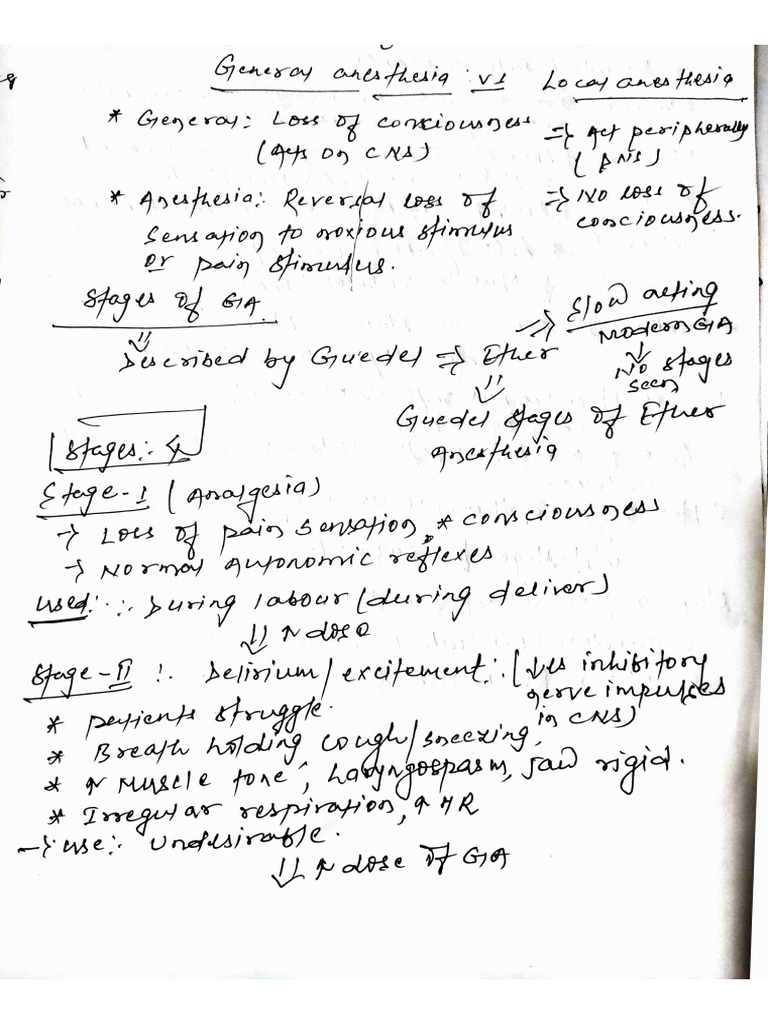 General anesthesia vs Local anesthesia
* General: Loss of consciousness => Act peripherally
(Acts on CNS) (PNS)
* Anesthesia: Reversal loss of => No loss of
sensation to noxious stimulus consciousness.
or pain stimulus.
Stages of GA => Slow acting
Modern GA
⇓ Described by Guedel => Ether ↓ No stages
seen
⇓
Guedel stages of Ether
Anesthesia
Stages:- 4
Stage-I (Analgesia)
→ Loss of pain sensation, * consciousness
→ Normal Autonomic reflexes
used:∴ During labour (during deliver)
⇓ ↑ dose
Stage-II :. Delirium/excitement:. (↓es inhibitory
nerve impulses
in CNS)
* patients struggle.
* Breath holding cough/sneezing,
* ↑ Muscle tone, Laryngospasm, Jaw rigid.
* Irregular respiration, ↑ HR
→ use:. Undesirable.
⇓ ↑ dose of GA